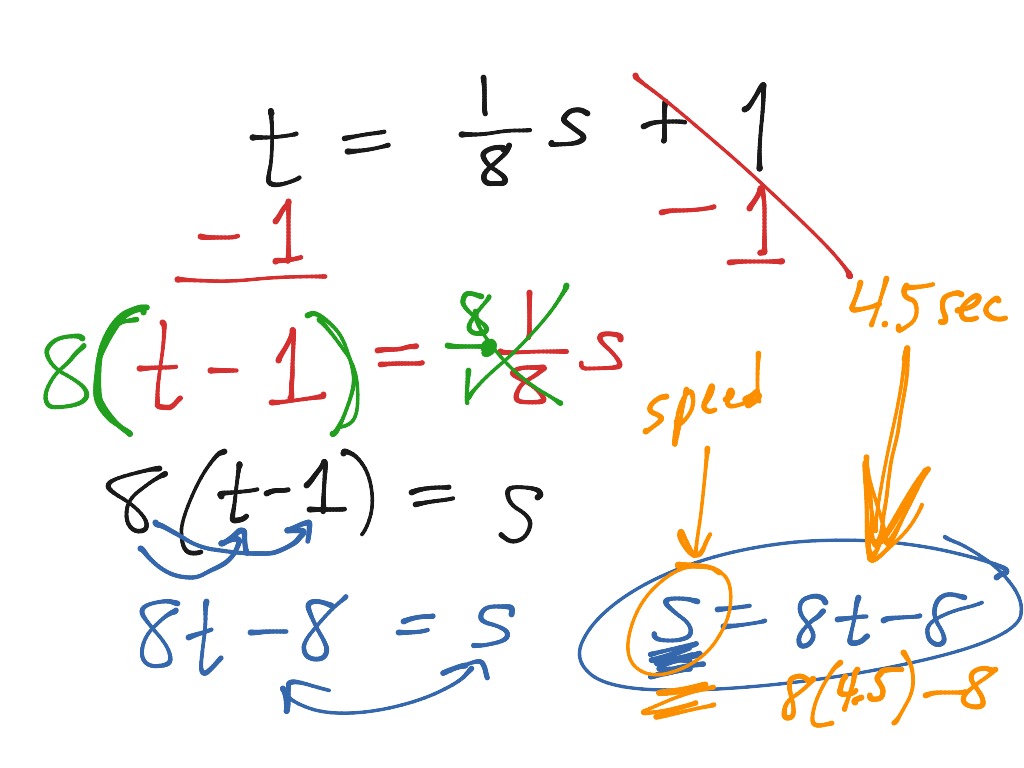 t = 1/8 s + 1
- 1 - 1
4.5 sec
8(t - 1) = 8 · 1/8 s
1
speed
8(t - 1) = s
8t - 8 = s
s = 8t - 8
8(4.5) - 8